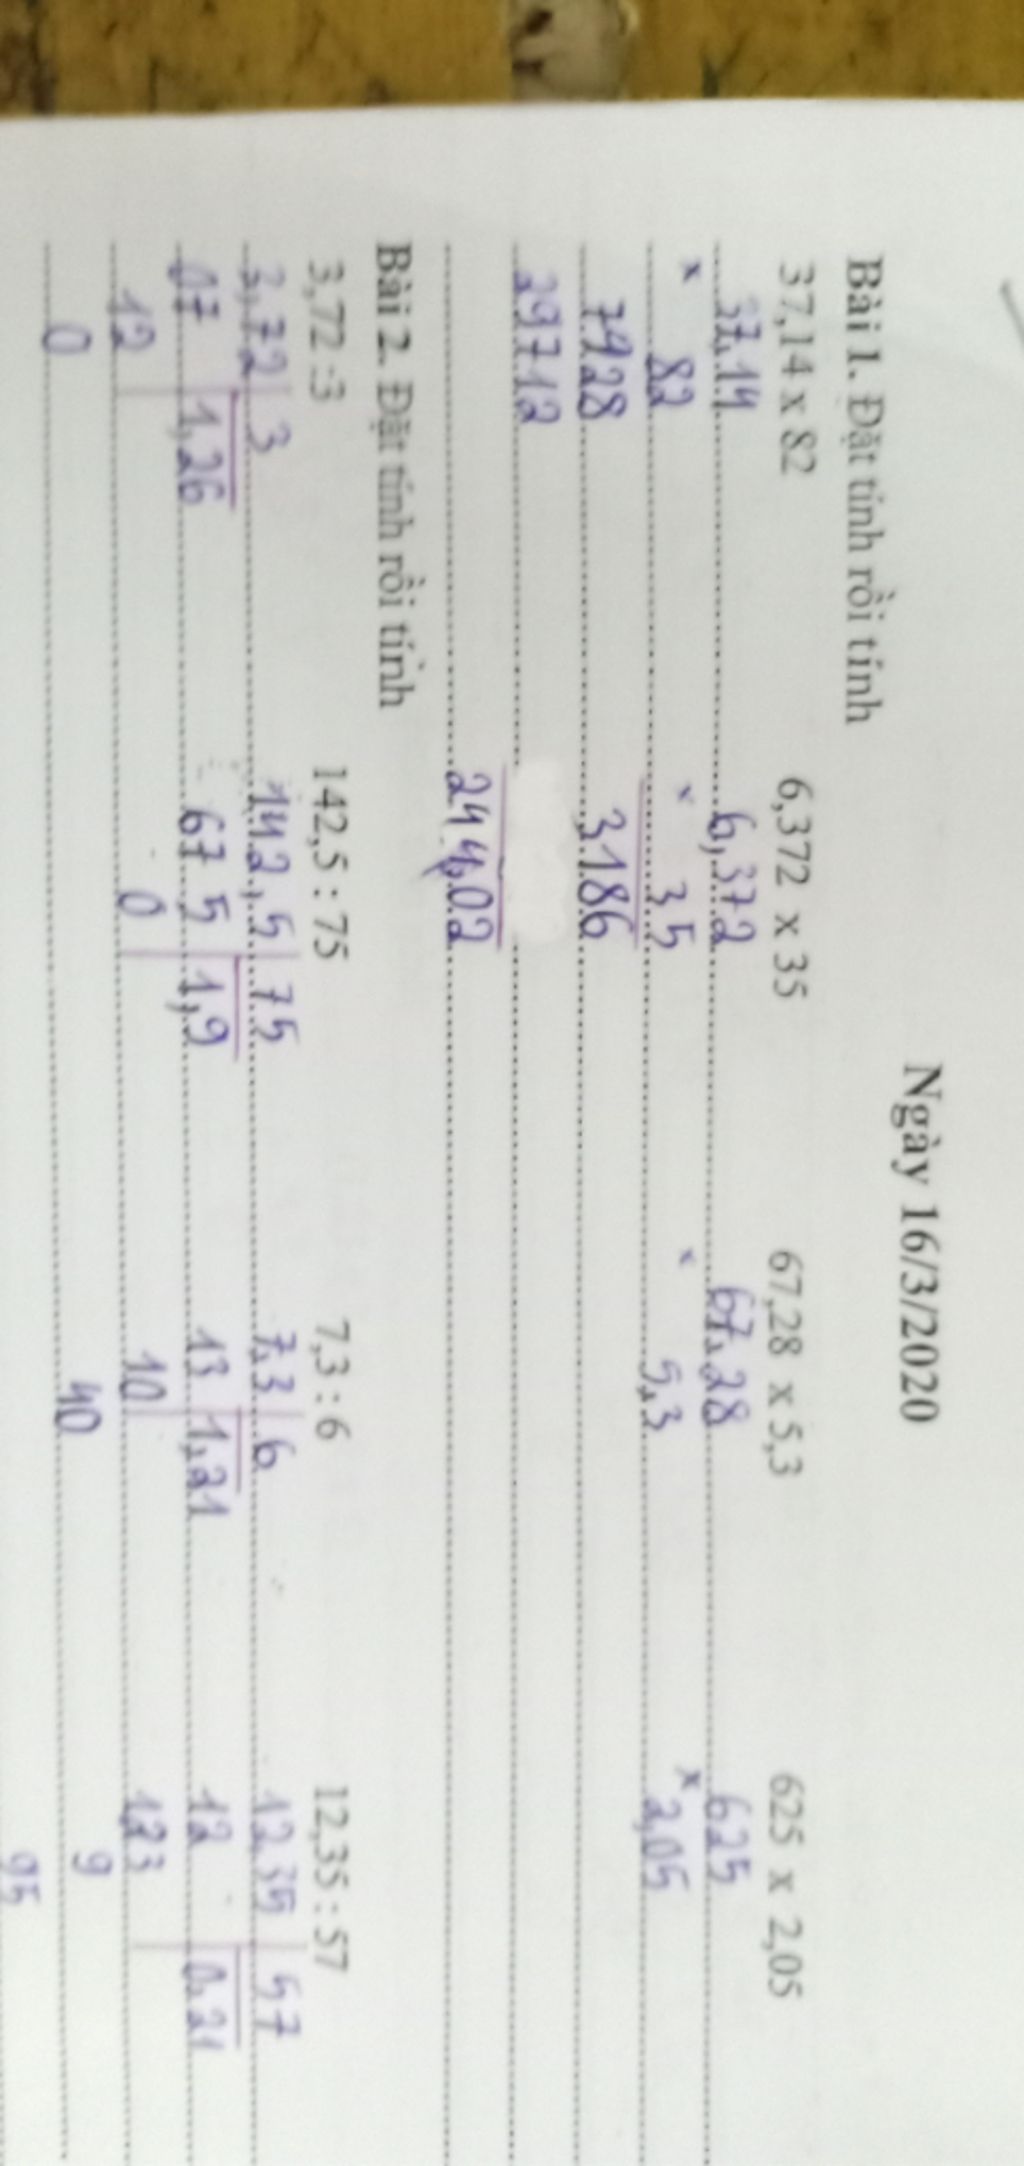 Ngày 16/3/2020
Bài 1. Đặt tính rồi tính
37,14 x 82 6,372 x 35 67,28 x 5,3 625 x 2,05
37,14 6,372 67,28 625
x 82 x 35 x 5,3 x 2,05
7428 3186
29712
244,02
Bài 2. Đặt tính rồi tính
3,72 :3 142,5 : 75 7,3 : 6 12,35 : 57
3,72 3 142,5 75 7,3 6 12,35 57
07 1,26 67 5 1,9 13 1,21 12 0,21
12 0 10 123
0 40 9
95